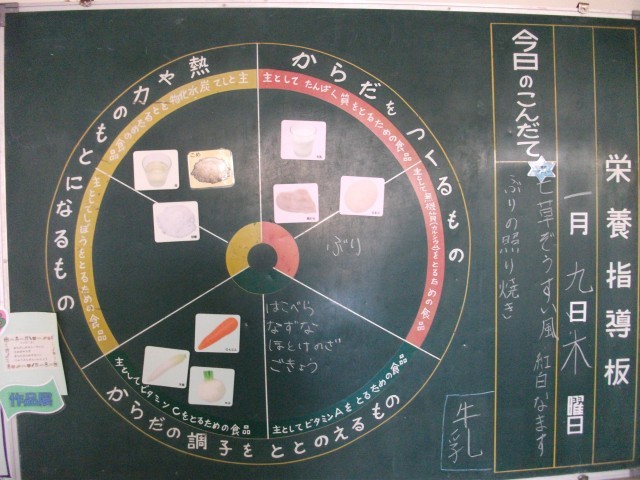 栄養指導板
一月九日木曜日
今日のこんだて
七草ぞうすい風 紅白なます
ぶりの照り焼き
牛乳
熱や力のもとになるもの
からだをつくるもの
からだの調子をととのえるもの
主として炭水化物をとるための食品
主としてたんぱく質をとるための食品
主として無機質(カルシウム)をとるための食品
主としてしぼうをとるための食品
主としてビタミンCをとるための食品
主としてビタミンAをとるための食品
ぶり
はこべら
なずな
ほとけのざ
ごぎょう
作品展